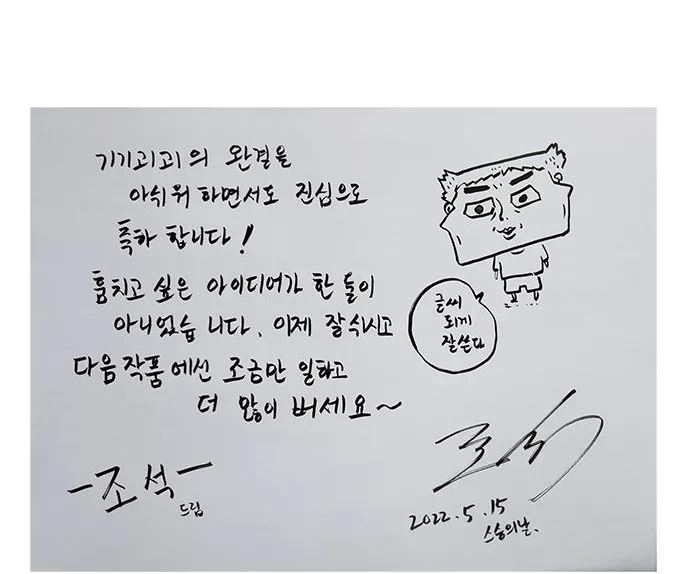 기기괴괴의 완결을
아쉬워 하면서도 진심으로
축하 합니다!
훔치고 싶은 아이디어가 한 둘이
아니었습니다. 이제 잘 쉬시고
다음 작품에선 조금만 일하고
더 많이 버세요~
글씨
되게
잘쓴다
-조석-
드림
2022.5.15
스승의날.